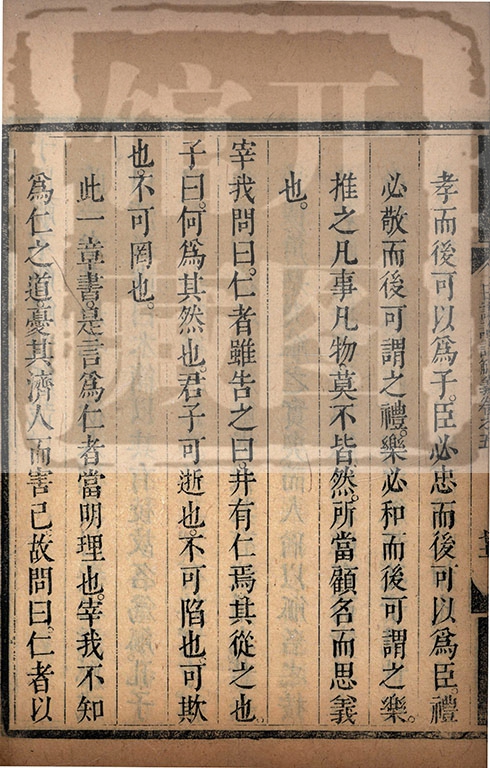 孝而後可以爲子。臣必忠而後可以爲臣。禮
必敬而後可謂之禮。樂必和而後可謂之樂。
推之凡事凡物莫不皆然。所當顧名而思義
也。
宰我問曰。仁者雖告之曰。井有仁焉其從之也
子曰。何爲其然也。君子可逝也。不可陷也可欺
也。不可罔也。
此一章書。是言爲仁者當明理也。宰我不知
爲仁之道。憂其濟人而害己故問曰。仁者以